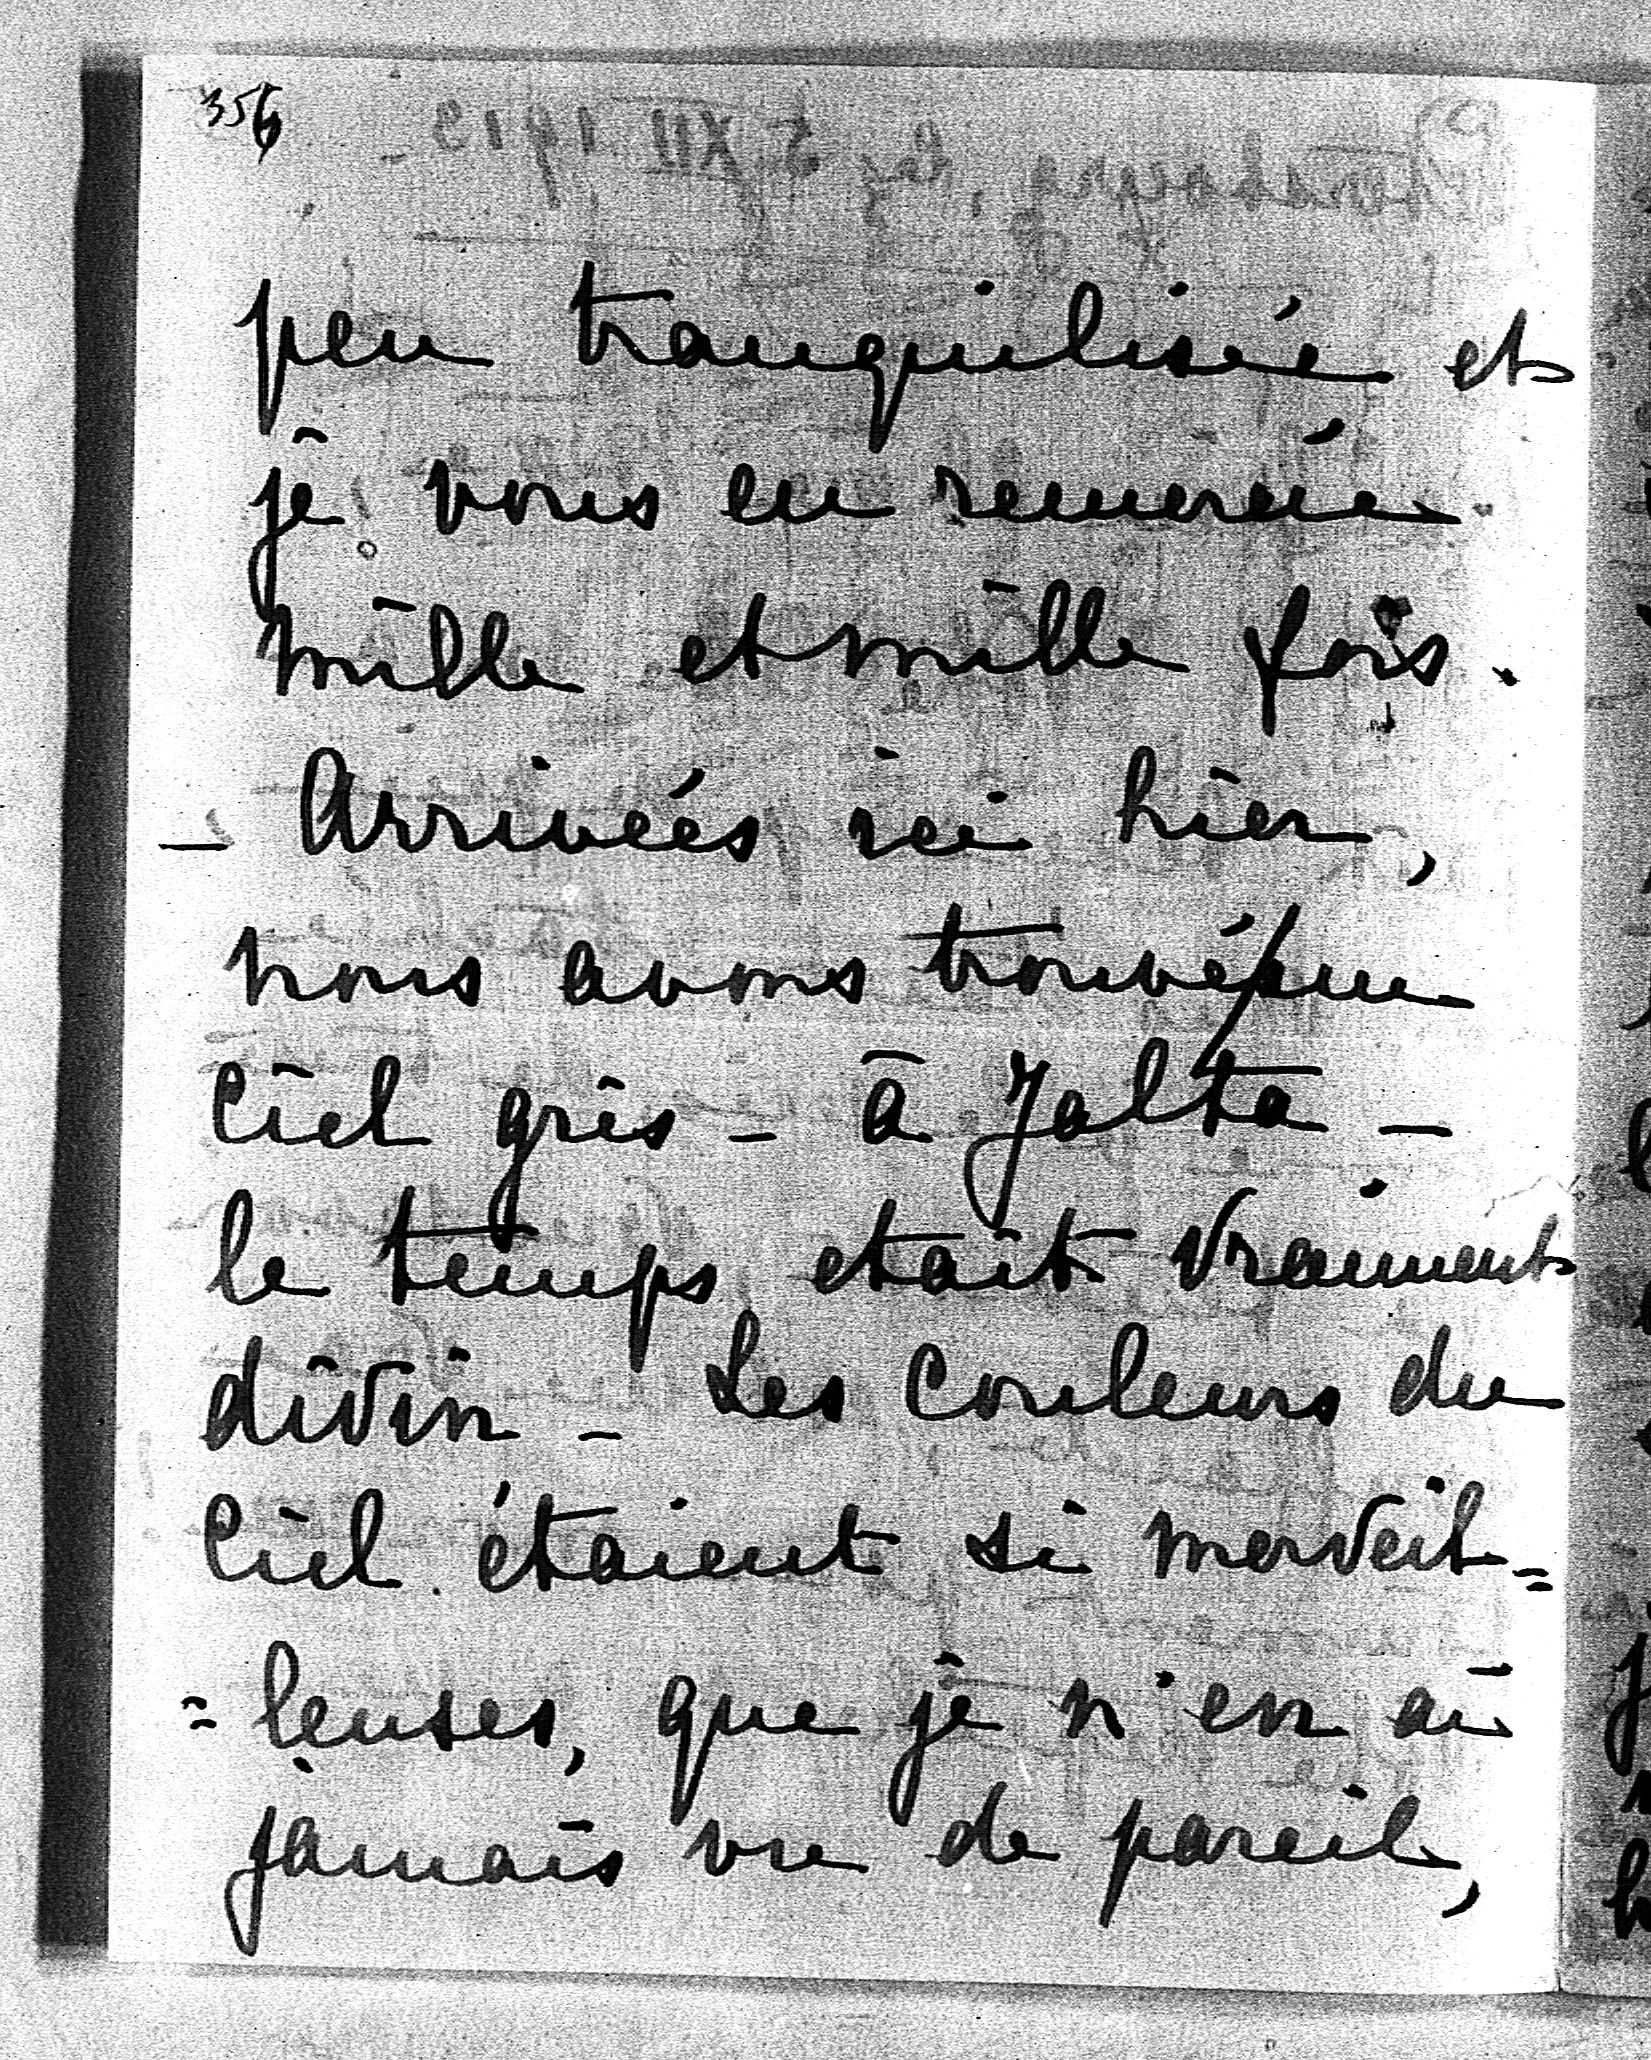 356
peu tranquilisée et
je vous en remercie
mille et mille fois.
_ Arrivées ici hier,
nous avons trouvé un
ciel gris _ à Jalta _
le temps etait vraiment
divin _ Les couleurs du
ciel étaient si merveil=
=leuses, que je n'en ai
jamais vu de pareil,